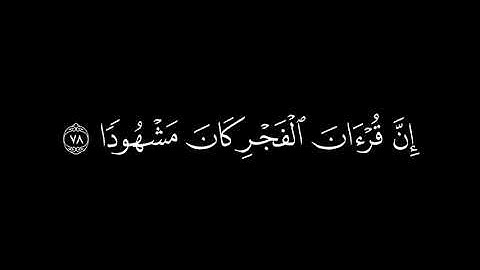 إِنَّ قُرْءَانَ ٱلْفَجْرِ كَانَ مَشْهُودًا ٧٨